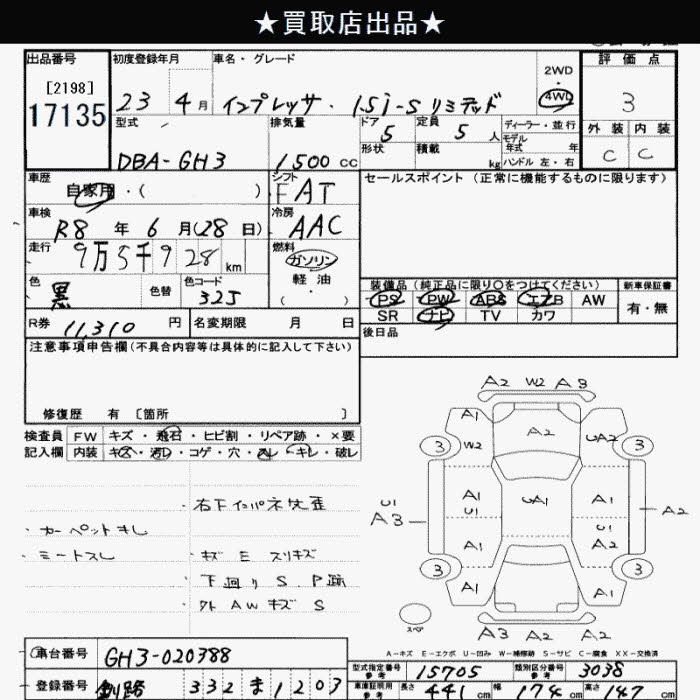 ★買取店出品★
出品番号 初度登録年月 車名・グレード 評価点
[2198] 2WD
17135 23 4月 インプレッサ・15i-S リミテッド 4WD 3
型式 排気量 ドア 定員 ディーラー・並行 外装 内装
5 5人 モデル年式 年
DBA-GH3 1500cc 形状 積載 kg ハンドル 左・右 C C
車歴 シフト セールスポイント(正常に機能するものに限ります)
自家用・( ) FAT
車検 冷房
R8年6月(28日) AAC
走行 燃料
9万5千928km ガソリン
色 色替 色コード 軽油 装備品(純正品に限り○をつけてください) 新車保証書
黒 325 ・( ) PS PW ABS エアB AW 有・無
R券 11,310円 名変期限 月 日 SR ナビ TV カワ
注意事項申告欄(不具合内容等は具体的に記入して下さい) 後日品
修復歴 有〔箇所 〕
検査員 FW キズ・飛石・ヒビ割・リペア跡・×要
記入欄 内装 キズ・汚レ・コゲ・穴・スレ・キレ・破レ
A2 W2 A3
A1 A2 UA2
3 W2 3
右下インパネ欠歪
A1 UA1 A1
U1 U1 U1
A3 A2
カーペットキレ
A1 A2
シートスレ キズ E スリキズ
3 3
下回り S.P跡 A1 A1
外 AW キズ S
スペア
A3 A2 A2
A-キズ E-エクボ U-凹み W-補修跡 S-サビ C-腐食 XX-交換済
車台番号 GH3-020388
型式指定番号 参考 15705 類別区分番号 参考 3038
登録番号 釧路 332 ま 1203
車庫証明用 参考 長さ 441cm 幅 174cm 高さ 147cm